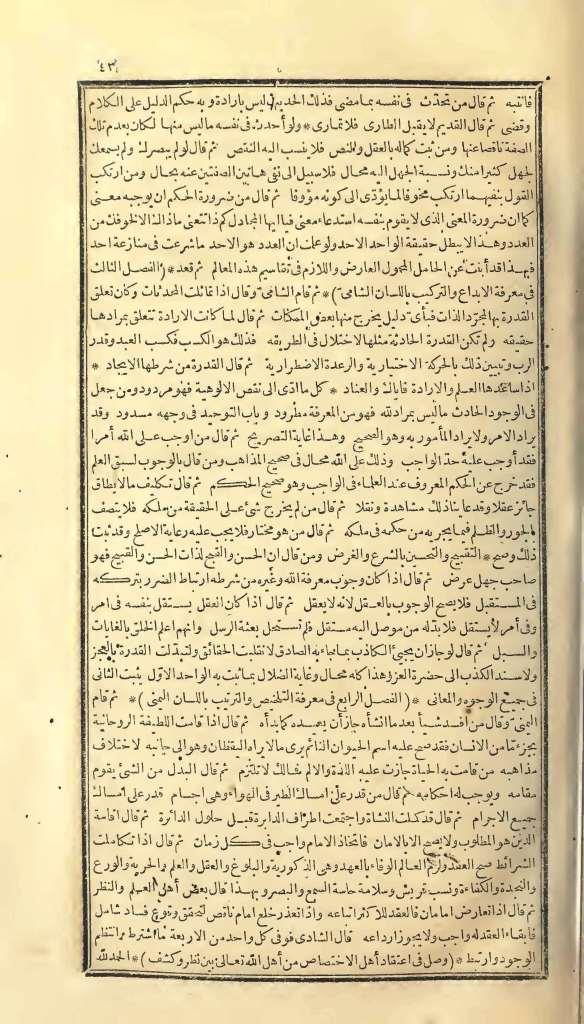 ٤٣
فانتبه ثم قال من تحدّث في نفسه بما مضى فذلك الحديث ليس بارادة وبه حكم الدليل على الكلام
وقضى ثم قال القديم لا يقبل الطارى فلا تمارى * ولو أحدث في نفسه ما ليس منها لكان بعدم تلك
الصفة ناقصا عنها ومن ثبت كماله بالعقل والنص فلا ينسب اليه النقص ثم قال لو لم يبصرك ولم يسمعك
لجهل كثيرا منك ونسبة الجهل اليه محال فلا سبيل الى نفى هاتين الصفتين عنه بحال ومن ارتكب
القول بنفيهما ارتكب مخوفا لما يؤدّى الى كونه مؤوفا ثم قال من ضرورة الحكم ان يوجبه معنى
كما ان ضرورة المعنى الذى لا يقوم بنفسه استدعاء معنى فيا أيها المجادل كم ذا تتعنى ماذاك الا لخوفك من
العدد وهذا لا يبطل حقيقة الواحد الاحد ولو علمت ان العدد هو الاحد ما شرعت في منازعة احد
فهذا قد أبنت عن الحامل المحمول العارض واللازم في تقاسيم هذه المعالم ثم قعد * (الفصل الثالث
في معرفة الابداع والتركيب باللسان الشامى) * ثم قام الشامى وقال اذا تماثلت المحدثات وكان تعلق
القدرة بها لمجرّد الذات فبأى دليل يخرج منها بعض الممكنات ثم قال لما كانت الارادة تتعلق بمرادها
حقيقه ولم تكن القدرة الحادثة مثلها لاختلال في الطريقه فذلك هو الكسب فكسب العبد وقدر
الرب وتبيين ذلك بالحركة الاختيارية والرعدة الاضطرارية ثم قال القدرة من شرطها الايجاد *
اذا ساعدها العلم والارادة فاياك والعناد * كل ما ادّى الى نقص الالوهية فهو مردود ومن جعل
في الوجود الحادث ما ليس بمراد لله فهو من المعرفة مطرود وباب التوحيد في وجهه مسدود وقد
يراد الامر ولا يراد المأمور به وهو الصحيح وهذا غاية التصريح ثم قال من اوجب على الله أمرا
فقد أوجب عليه حدّ الواجب وذلك على الله محال في صحيح المذاهب ومن قال بالوجوب لسبق العلم
فقد خرج عن الحكم المعروف عند العلماء في الواجب وهو صحيح الحكم ثم قال تكليف ما لا يطاق
جائز عقلا وقد عاينا ذلك مشاهدة ونقلا ثم قال من لم يخرج شئ على الحقيقة من ملكه فلا يتصف
بالجور والظلم فيما يجريه من حكمه في ملكه ثم قال من هو مختار فلا يجب عليه رعاية الاصلح وقد ثبت
ذلك وصح * التقبيح والتحسين بالشرع والغرض ومن قال ان الحسن والقبح لذات الحسن والقبيح فهو
صاحب جهل عرض ثم قال اذا كان وجوب معرفة الله وغيره من شرطه ارتباط الضرر بتركه
في المستقبل فلا يصح الوجوب بالعقل لانه لا يعقل ثم قال اذا كان العقل يستقل بنفسه في امر
وفي أمر لا يستقل فلا بدّ له من موصل اليه مستقل فلم تستحل بعثة الرسل وانهم اعلم الخلق بالغايات
والسبل ثم قال لو جاز ان يجئ الكاذب بما جاء به الصادق لانقلبت الحقائق ولتبدّلت القدرة بالعجز
ولاستند الكذب الى حضرة العز وهذا كله محال وغاية الضلال بما ثبت به الواحد الاوّل يثبت الثانى
في جميع الوجوه والمعانى * (الفصل الرابع في معرفة التلخيص والترتيب باللسان اليمنى) * ثم قام
اليمنى وقال من أفسد شيأ بعد ما أنشأه جاز أن يعيده كما بدأه ثم قال اذا قامت اللطيفة الروحانية
بجزء تا من الانسان فقد صح عليه اسم الحيوان النائم يرى ما لا يراه اليقظان وهو الى جانبه لاختلاف
مذاهبه من قامت به الحياة جازت عليه اللذة والالم فمالك لا تلتزم ثم قال البدل من الشئ يقوم
مقامه ويوجب له احكامه ثم قال من قدر على امساك الطير في الهواء وهى اجسام قدر على امساك
جميع الاجرام ثم قال قد كملت النشأة واجتمعت اطراف الدائرة قبل حلول الدائرة ثم قال اقامة
الدين هو المطلوب ولا يصح الا بالامان فاتخاذ الامام واجب في كل زمان ثم قال اذا تكاملت
الشرائط صح العقد ولزم العالم الوفاء بالعهد وهى الذكورية والبلوغ والعقل والعلم والحرية والورع
والنجدة والكفاءة ونسب قريش وسلامة حاسة السمع والبصر وبهذا قال بعض أهل العلم والنظر
ثم قال اذا تعارض امامان فالعقد للاكثر اتباعه واذا تعذر خلع امام ناقص لتحقق وقوع فساد شامل
فابقاء العقد له واجب ولا يجوز ارداعه قال الشادى فوفى كل واحد من الاربعة ما اشترط وانتظم
الوجود وارتبط * (وصل في اعتقاد أهل الاختصاص من أهل الله تعالى بين نظر وكشف) * الحمد لله